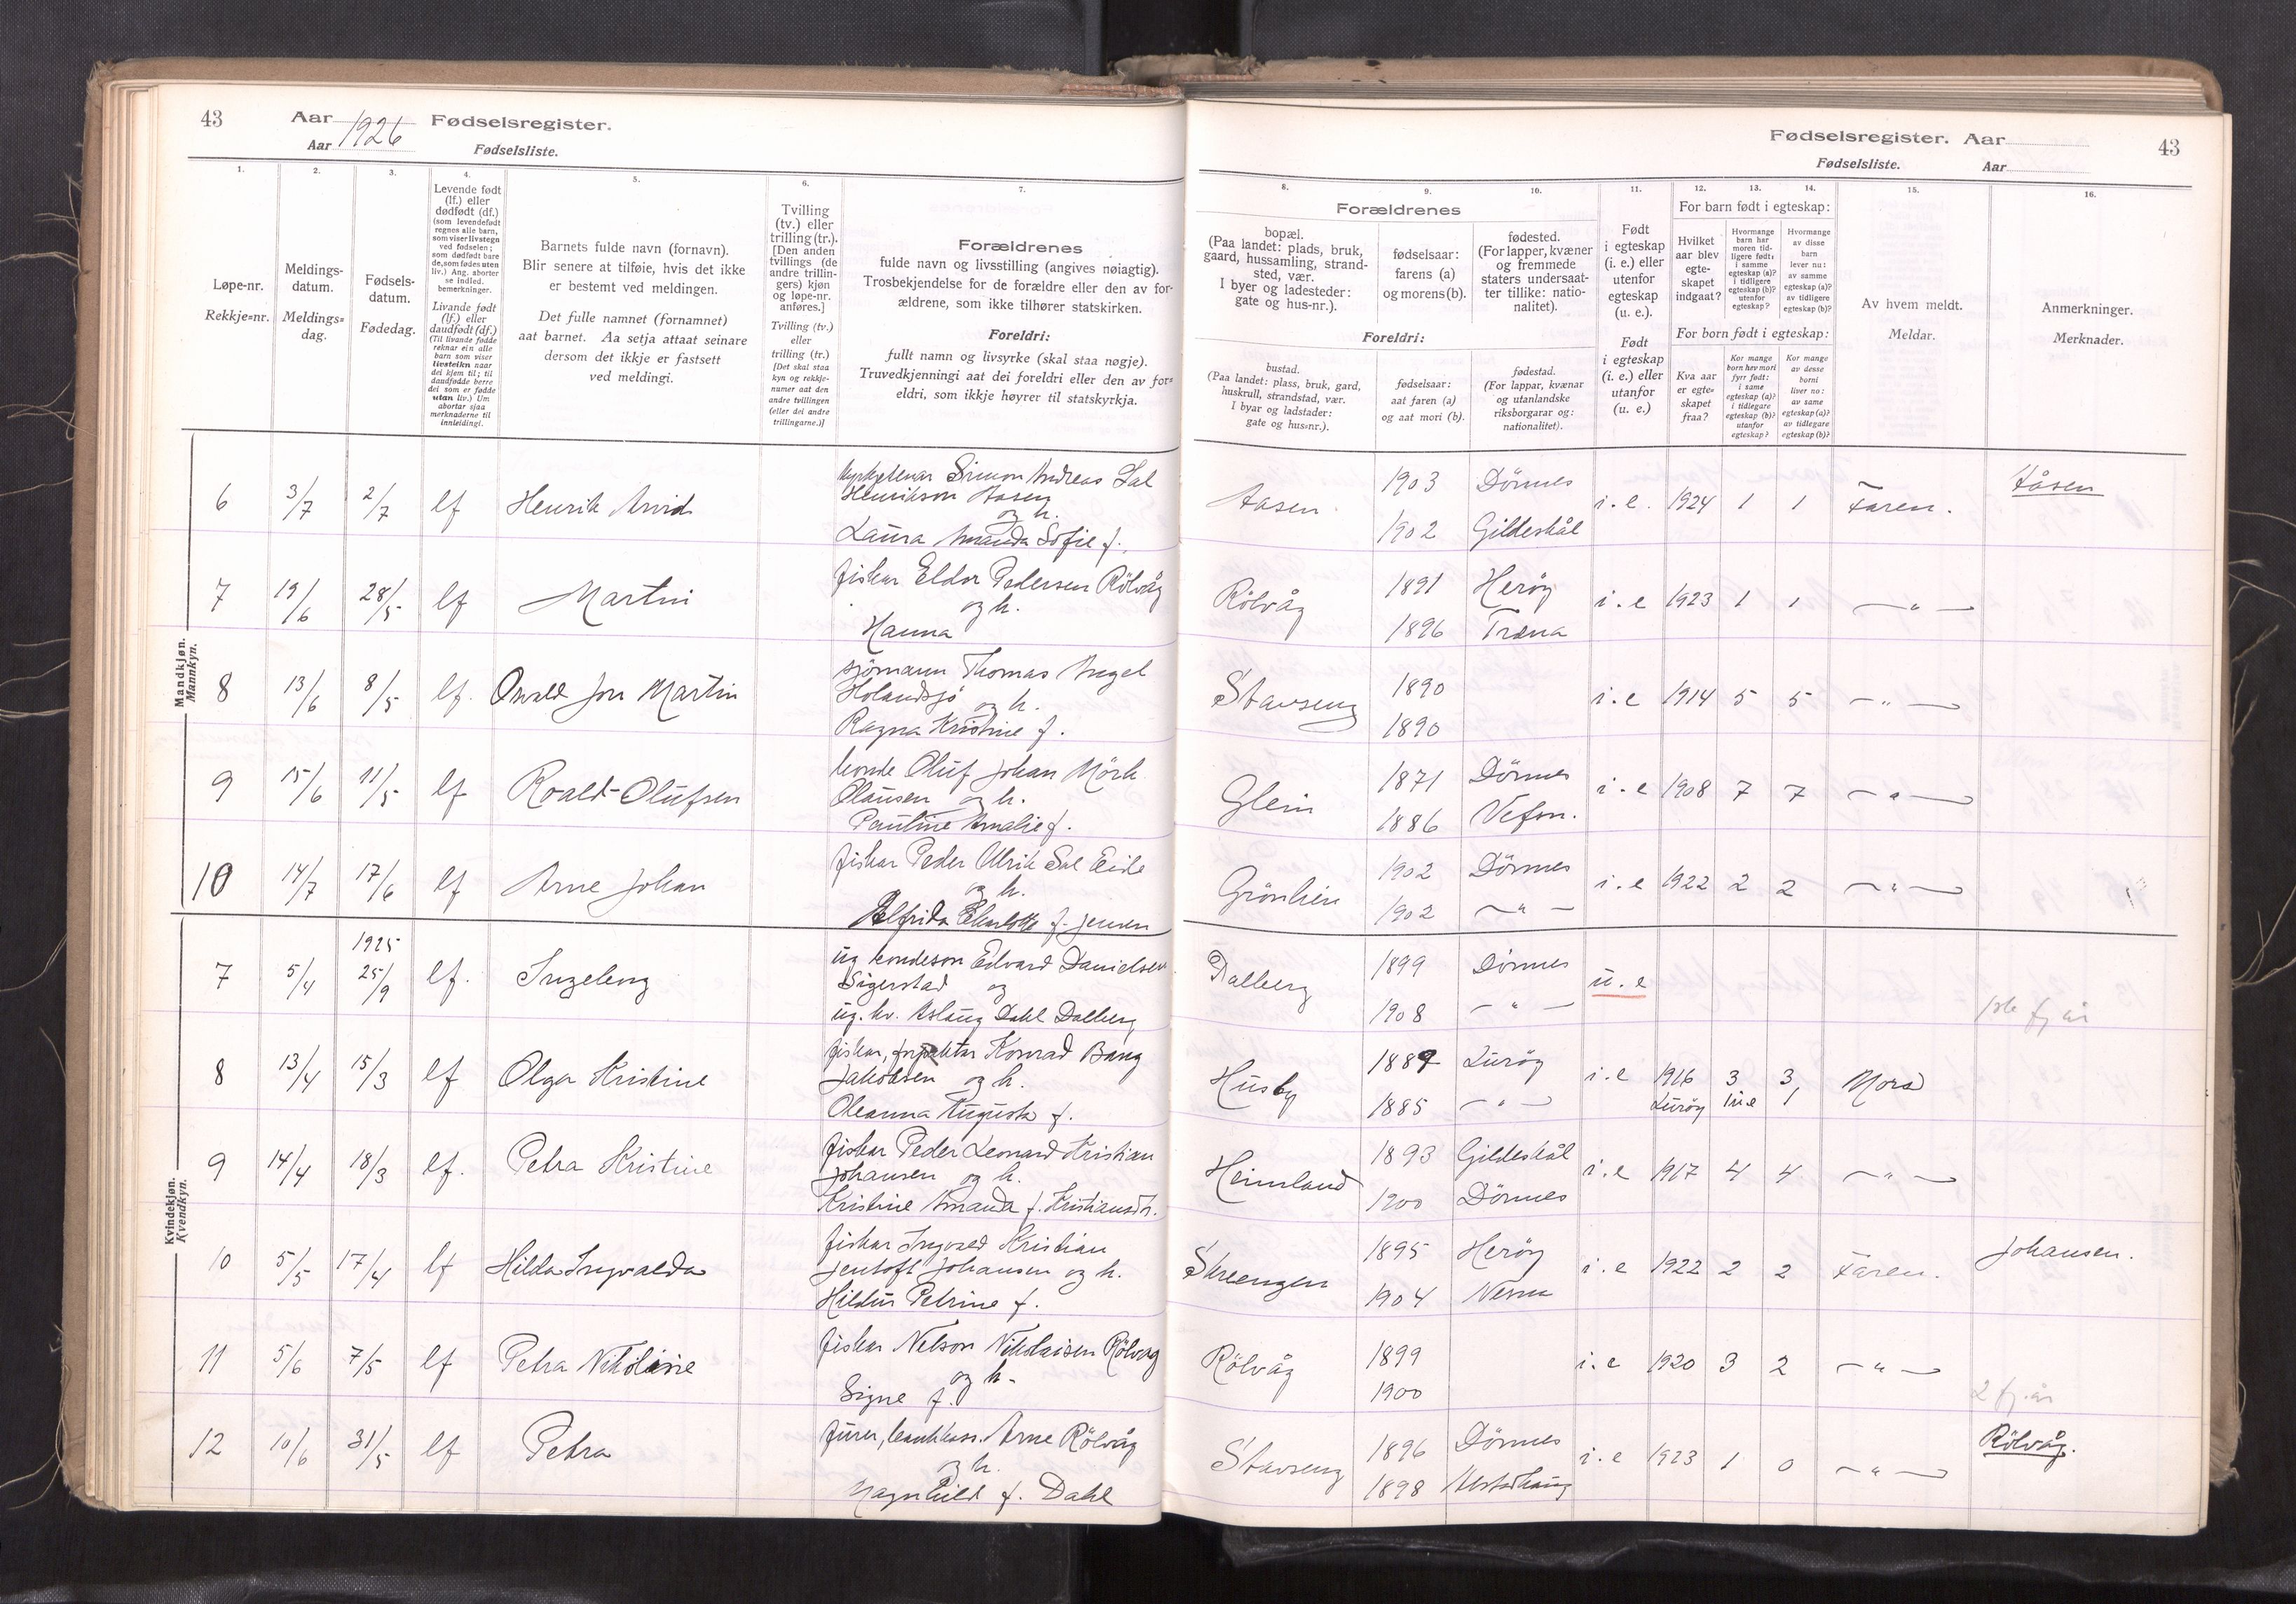 43
Aar 1926 Fødselsregister.
Aar
Fødselsliste.
1.
2.
3.
4.
5.
6.
7.
Løpe-nr.
Rekkje=nr.
Meldings-
datum.
Meldings=
dag.
Fødsels-
datum.
Fødedag.
Levende født
(lf.) eller
dødfødt (df.)
(som levendefødt
regnes alle barn,
som viser livstegn
ved fødselen;
som dødfødt bare
de, som fødes uten
liv.) Ang. aborter
se indled.
bemerkninger.
Livande født
(lf.) eller
daudfødt (df.)
(Til livande fødde
reknar ein alle
born som viser
livsteikn naar
dei kjem til; til
daudfødde berre
dei som er fødde
utan liv.) Um
abortar sjaa
merknaderne til
innleidingi.
Barnets fulde navn (fornavn).
Blir senere at tilføie, hvis det ikke
er bestemt ved meldingen.
Det fulle namnet (fornamnet)
aat barnet. Aa setja attaat seinare
dersom det ikkje er fastsett
ved meldingi.
Tvilling
(tv.) eller
trilling (tr.).
[Den anden
tvillings (de
andre trillin-
gers) kjøn
og løpe-nr.
anføres.]
Tvilling (tv.)
eller
trilling (tr.)
[Det skal staa
kyn og rekkje-
numer aat den
andre tvillingen
(eller dei andre
trillingarne.)]
Forældrenes
fulde navn og livsstilling (angives nøiagtig).
Trosbekjendelse for de forældre eller den av for-
ældrene, som ikke tilhører statskirken.
Foreldri:
fullt namn og livsyrke (skal staa nøgje).
Truvedkjenningi aat dei foreldri eller den av for=
eldri, som ikkje høyrer til statskyrkja.
Mandkjøn.
Mannkyn.
6 3/7 2/7 lf Henrik Arvid
Simon Andreas Sal
Henrikson Aasen
og h.
Laura Amanda Sofie f.
7 19/6 28/5 lf Martin
fiskar Eldor Pedersen Rölvåg
og h.
Hanna
8 13/6 8/5 lf. Osvald Jon Martin
sjömann Thomas Angel
Holandsjö og h.
Ragna Kristine f.
9 15/6 11/5 lf Roald-Olufsen
bonde Oluf Johan Mörk
Olausen og h.
Pauline Amalie f.
10 14/7 17/6 lf Arne Johan
fiskar Peder Ulrik Sal Eide
og h.
Elfrida Charlotte f. Jensen
Kvindekjøn.
Kvendkyn.
7 5/4 1925 25/9 lf. Ingeleng
ug. bondeson Edvard Danielsen
Sigerstad og
ug. kv. Aslaug Dahl Dalberg
8 13/4 15/3 lf Olga Kristine
fiskar, forpaktar Konrad Bang
Jakobsen og h.
Oleanna Augusta f.
9 14/4 18/3 lf. Petra Kristine
fiskar Peder Leonard Kristian
Johansen og h.
Kristine Amanda f. Kristiansdtr.
10 5/5 17/4 lf Hilda Ingvalda
fiskar Ingvald Kristian
Jentoft Johansen og h.
Hildur Petrine f.
11 5/6 7/5 lf Petra Nikoline
fiskar Nelson Nikolaisen Rölvåg
og h.
Signe f.
12 10/6 31/5 lf Petra
furer, bankkass. Arne Rölvåg
og h.
Magnhild f. Dahl
Fødselsregister. Aar
43
Fødselsliste.
Aar
8.
9.
10.
11.
12.
13.
14.
15.
16.
Forældrenes
bopæl.
(Paa landet: plads, bruk,
gaard, hussamling, strand-
sted, vær.
I byer og ladesteder:
gate og hus-nr.).
fødselsaar:
farens (a)
og morens (b).
fødested.
(For lapper, kvæner
og fremmede
staters undersaat-
ter tillike: natio-
nalitet).
Foreldri:
bustad.
(Paa landet: plass, bruk, gard,
huskrull, strandstad, vær.
I byar og ladstader:
gate og hus=nr.).
fødselsaar:
aat faren (a)
og aat mori (b).
fødestad.
(For lappar, kvænar
og utanlandske
riksborgarar og:
nationalitet).
Født
i egteskap
(i. e.) eller
utenfor
egteskap
(u. e.).
Født
i egteskap
(i. e.) eller
utanfor
(u. e.)
For barn født i egteskap:
Hvilket
aar blev
egte-
skapet
indgaat?
Hvormange
barn har
moren tid-
ligere født:
i samme
egteskap (a)?
i tidligere
egteskap (b)?
utenfor
egteskap?
Hvormange
av disse
barn
lever nu:
av samme
egteskap (a)?
av tidligere
egteskap (b)?
For born født i egteskap:
Kva aar
er egte=
skapet
fraa?
Kor mange
born hev mori
fyrr født:
i same
egteskap (a)?
i tidlegare
egteskap (b)?
utanfor
egteskap?
Kor mange
av desse
borni
liver no:
av same
egteskap (a)?
av tidlegare
egteskap (b)?
Av hvem meldt.
Meldar.
Anmerkninger.
Merknader.
Aasen 1903 Dönnes i.e. 1924 1 1 Faren. Håsen
1902 Gildeskål
Rölvåg 1891 Heröy i.e 1923 1 1 — " —
1896 Træna
Stavseng 1890 i.e 1914 5 5 — " —
1890
Glein 1871 Dönnes i.e 1908 7 7 — " —
1886 Vefsn.
Grönlien 1902 Dönnes i.e 1922 2 2 — " —
1902 — " —
Dalberg 1899 Dönnes u.e
1908 — " —
fj år
Husby 1889 Luröy i.e 1916 3 3 Mora
1885 — " — Luröy 1 u.e 1
Heimland 1893 Gildeskål i.e 1917 4 4 — " —
1900 Dönnes
Skeengen 1895 Heröy i.e 1922 2 2 Faren. Johansen.
1904 Nesna
Rölvåg 1899 i.e 1920 3 2 — " —
1900
2 fj. år
Stavseng 1896 Dönnes i.e 1923 1 0 — " — Rölvåg.
1898 Alstadhaug